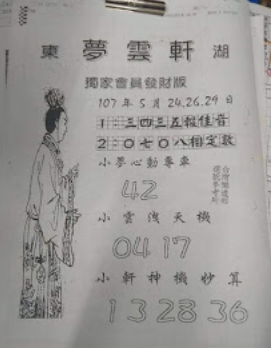 東 夢雲軒 湖
獨家會員發財版
107年5月24,26,29日
1 一三四三五報佳音
2 0七0八相定敦
小夢心動專車
42
小雲洩天機
04 17
小軒神機妙算
13 28 36